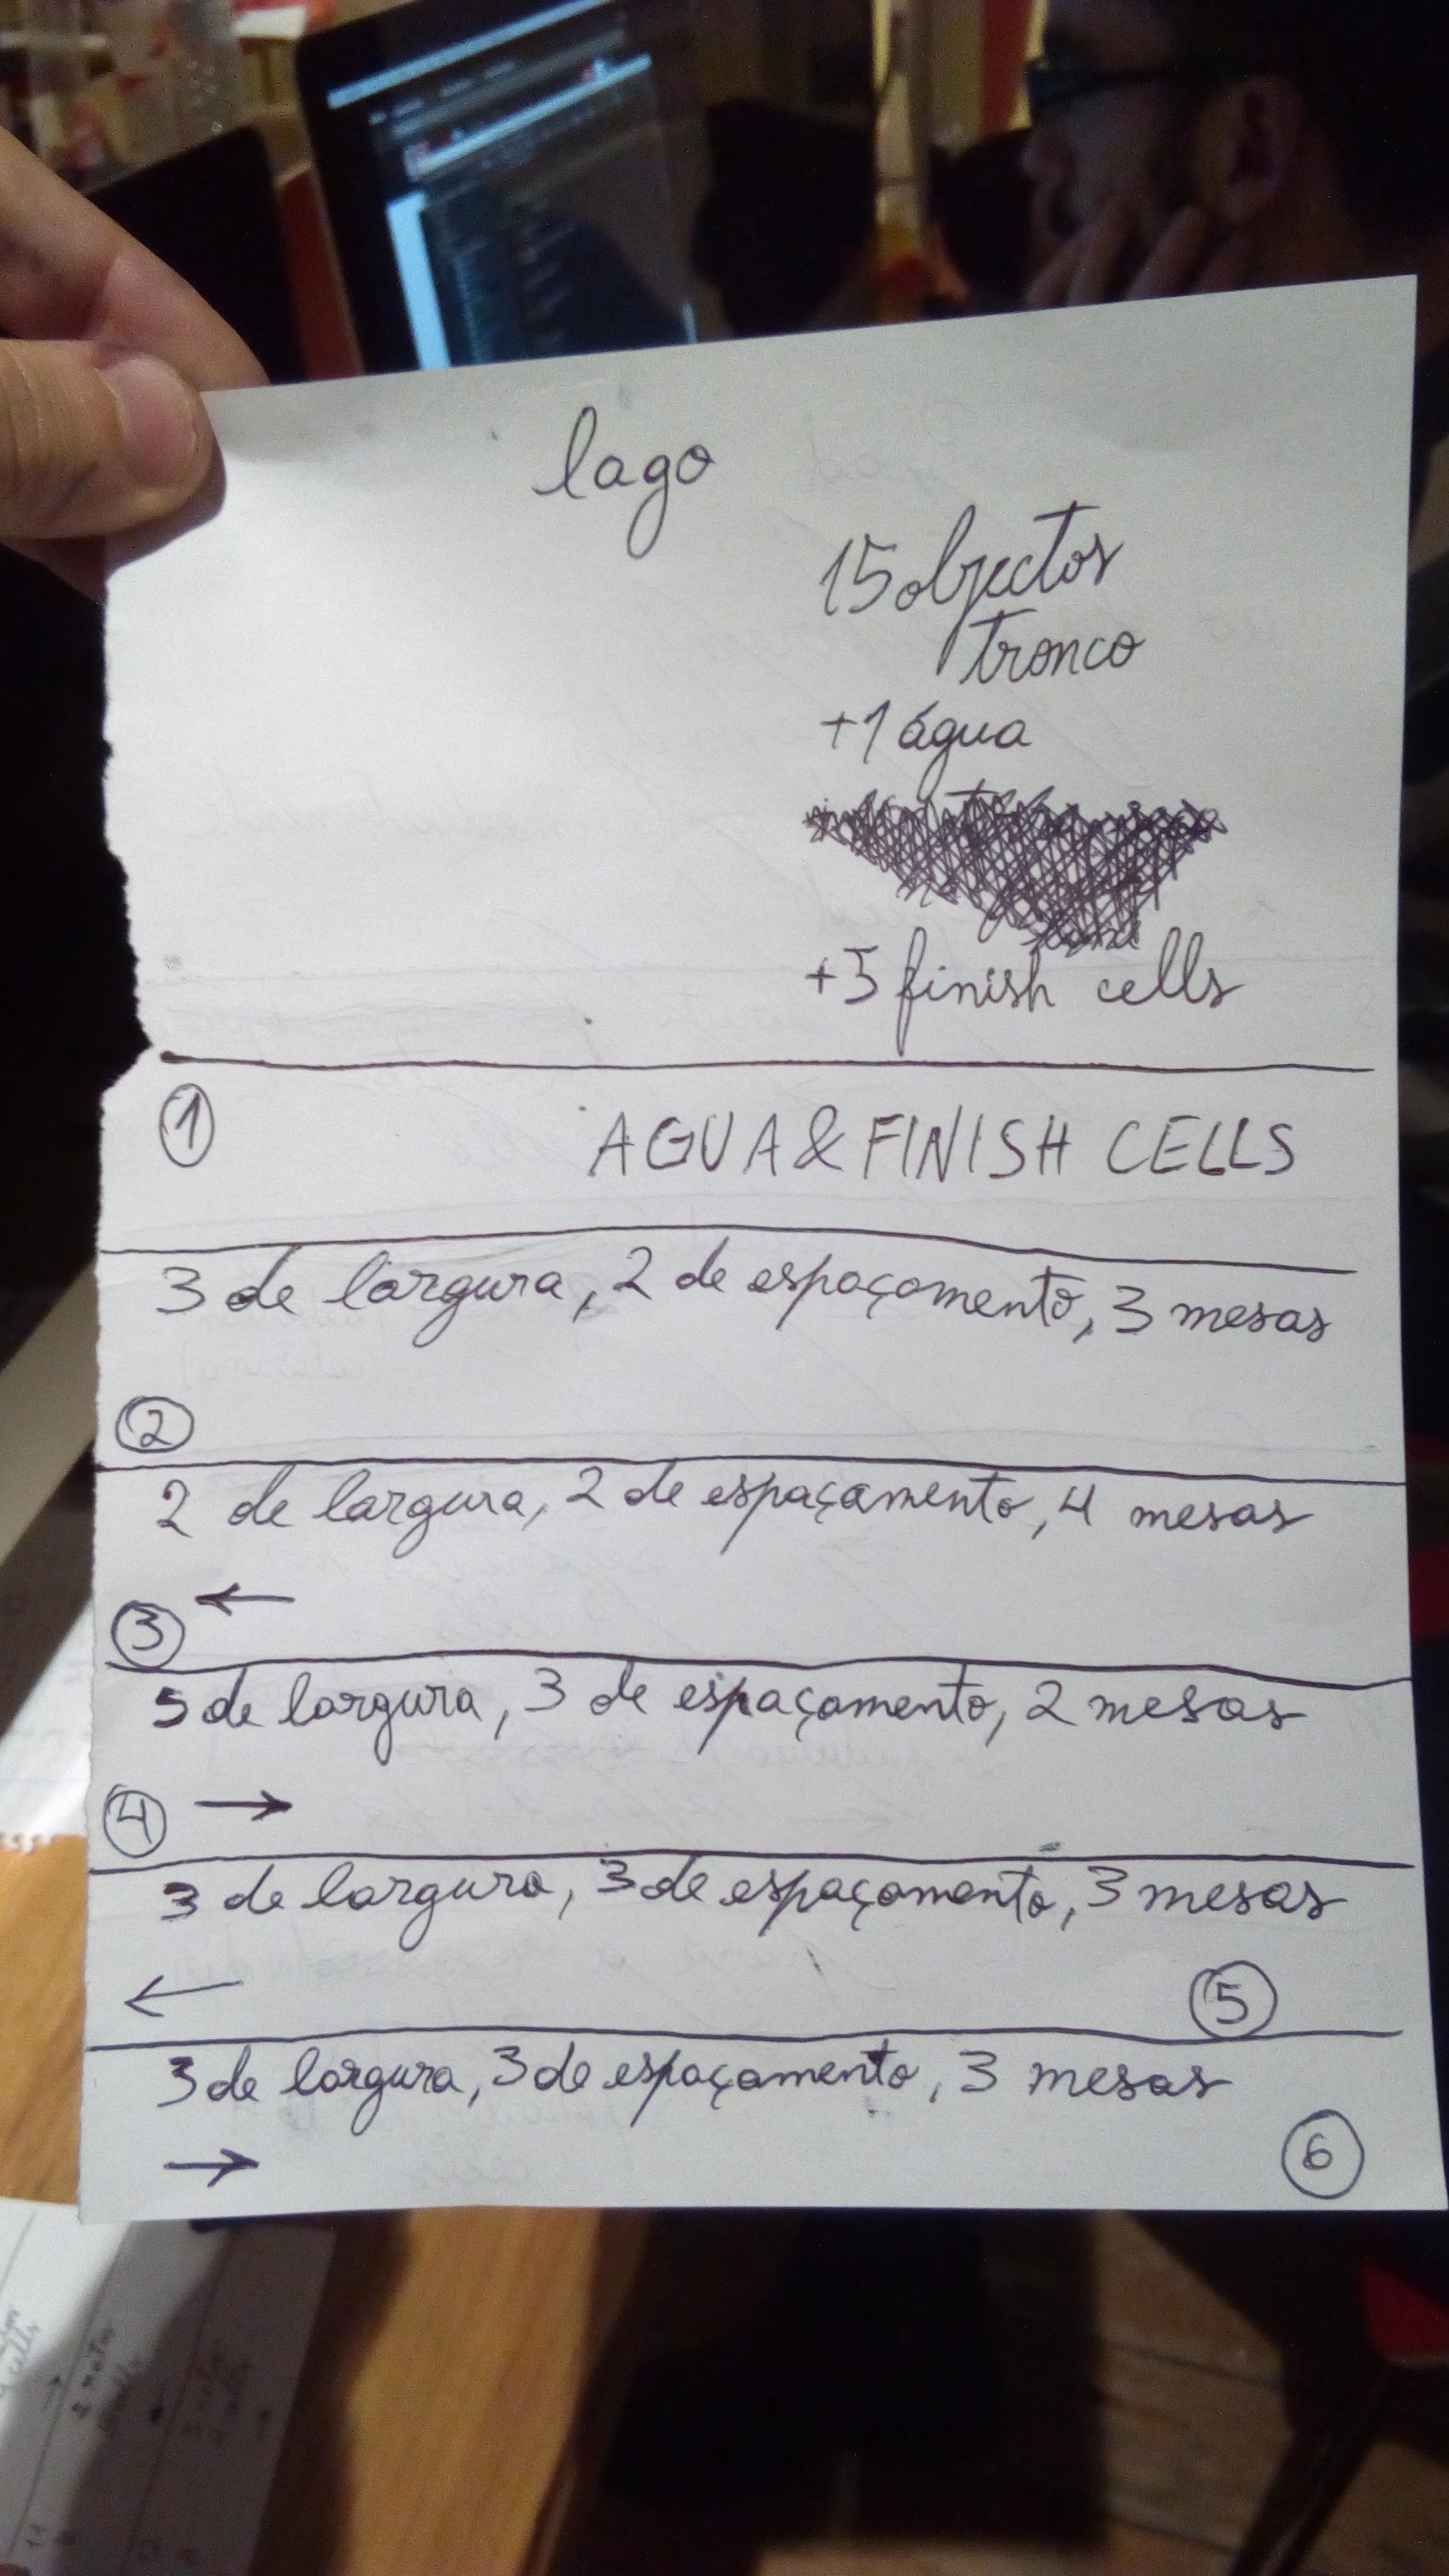 lago
15 objectos
tronco
+1 água
+5 finish cells
1 AGUA & FINISH CELLS
3 de largura, 2 de espaçamento, 3 mesas
2
2 de largura, 2 de espaçamento, 4 mesas
←
3
5 de largura, 3 de espaçamento, 2 mesas
4 →
3 de largura, 3 de espaçamento, 3 mesas
← 5
3 de largura, 3 de espaçamento, 3 mesas
→ 6